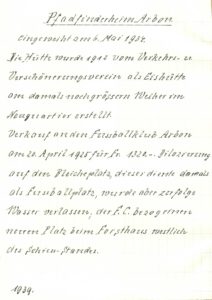 Pfadfinderheim Arbon
eingeweiht am 6. Mai 1934.
Die Hütte wurde 1912 vom Verkehrs- u.
Verschönerungsverein als Eishütte
am damals noch grössern Weiher im
Neuquartier erstellt.
Verkauf an den Fussballklub Arbon
am 20. April 1925 für Fr. 1320.-. Plazierung
auf den Bleicheplatz, dieser diente damals
als Fussballplatz, wurde aber zufolge
Wasser verlassen, der F.C. bezog einen
neuen Platz beim Forsthaus westlich
des Schiess-standes.
1939.